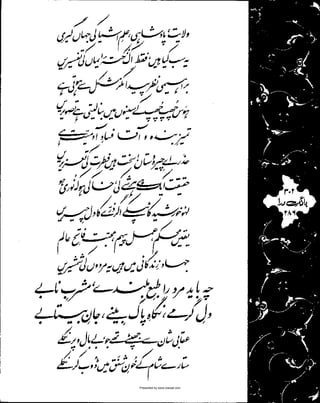 ولایت، پادشاہی، علمِ اشیا کی جہاں گیری
یہ سب کیا ہیں، فقط اک نکتۂ ایماں کی تفسیریں
براہیمی نظر پیدا مگر مشکل سے ہوتی ہے
ہوس چھپ چھپ کے سینوں میں بنا لیتی ہے تصویریں
تمیزِ بندہ و آقا فسادِ آدمیت ہے
حذر اے چیرہ دستاں! سخت ہیں فطرت کی تعزیریں
حقیقت ایک ہے ہر شے کی، خاکی ہو کہ نوری ہو
لہو خورشید کا ٹپکے اگر ذرے کا دل چیریں
یقیں محکم، عمل پیہم، محبت فاتحِ عالم
جہادِ زندگانی میں ہیں یہ مردوں کی شمشیریں
چہ باید مرد را طبعِ بلندے، مشربِ نابے
دلِ گرمے، نگاہِ پاک بینے، جانِ بیتابے
عقابی شان سے جھپٹے تھے جو، بے بال و پر نکلے
ستارے شام کے خونِ شفق میں ڈوب کر نکلے
۳۰۲
بانگِ درا
۲۸۶